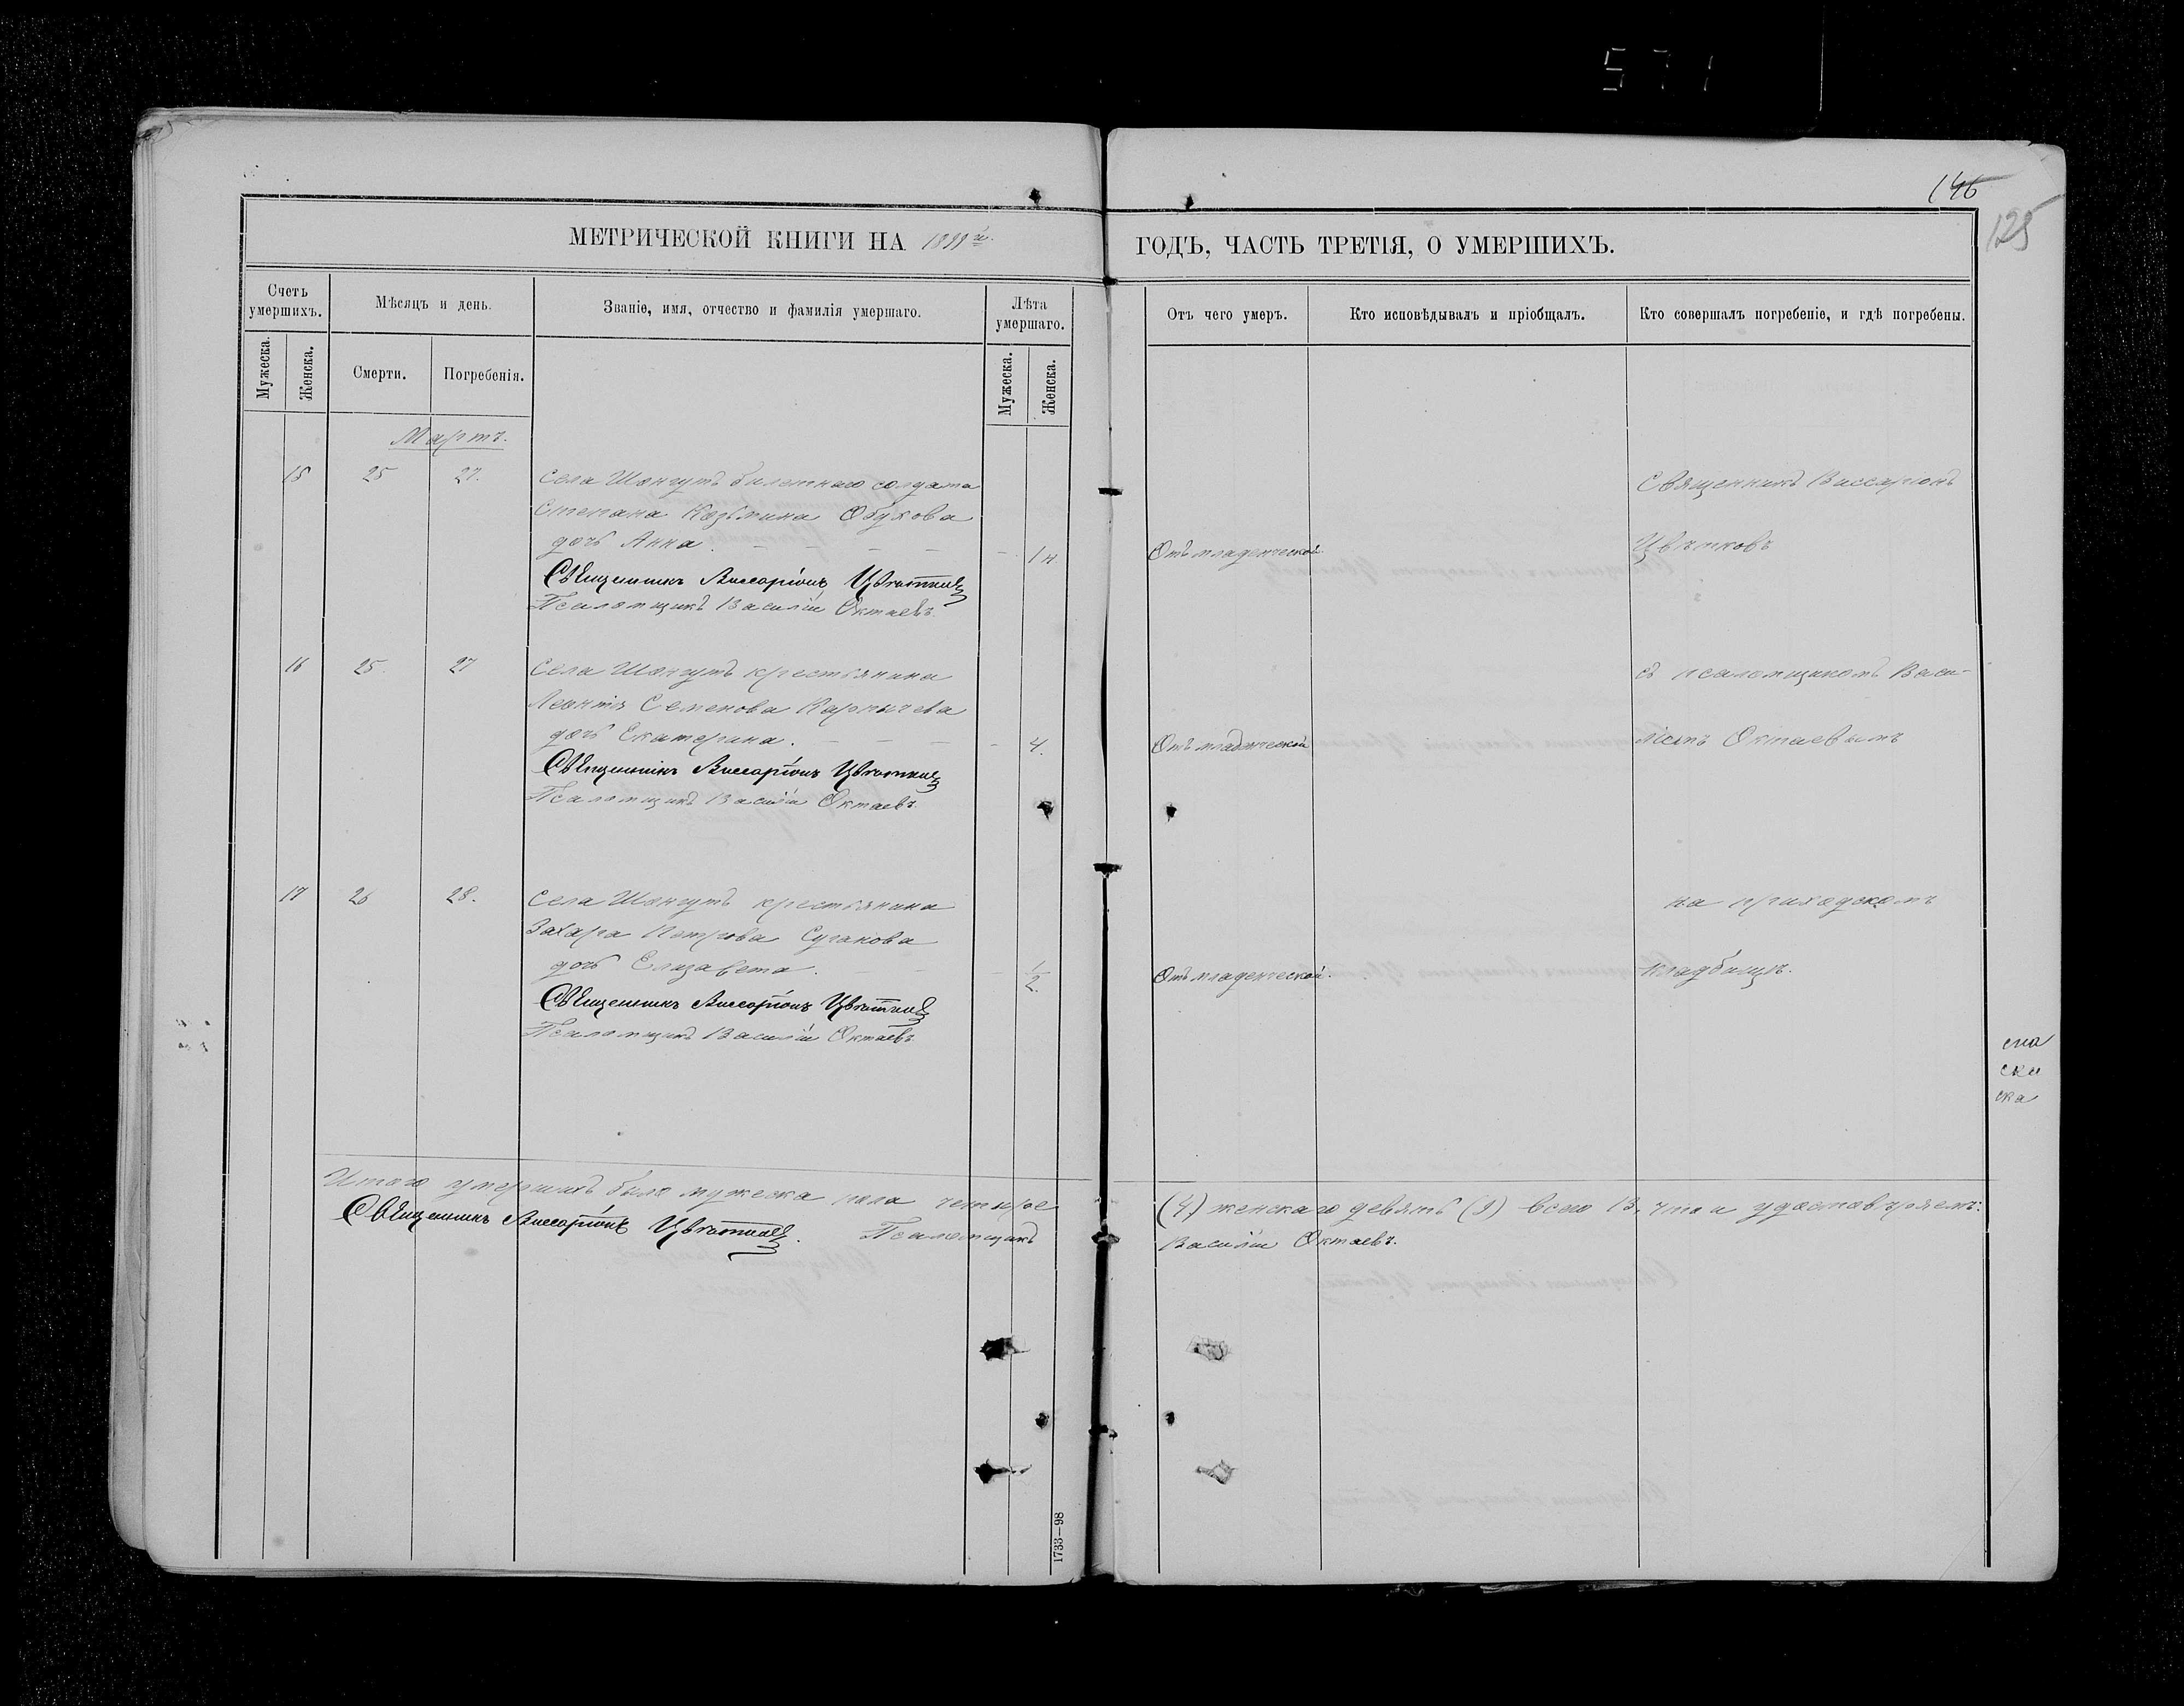 571
146
125
МЕТРИЧЕСКОЙ КНИГИ НА 1899й.
ГОДЪ, ЧАСТЬ ТРЕТІЯ, О УМЕРШИХЪ.
Счетъ умершихъ.
Мѣсяцъ и день.
Званіе, имя, отчество и фамилія умершаго.
Лѣта умершаго.
Отъ чего умеръ.
Кто исповѣдывалъ и пріобщалъ.
Кто совершалъ погребеніе, и гдѣ погребены.
Мужеска.
Женска.
Смерти.
Погребенія.
Мужеска.
Женска.
Мартъ.
15 25 27. Села Шонгутъ билетнаго солдата
Священникъ Виссаріонъ
Степана Козьмина Обухова
дочь Анна. 1 н Отъ младенческой
Цвѣтковъ
Священникъ Виссаріонъ Цвѣтковъ
Псаломщикъ Василій Октаевъ.
16 25. 27 Села Шонгутъ крестьянина
съ псаломщикомъ Васи-
Леонтія Семенова
дочь Екатерина. 4. Отъ младенческой
ліемъ Октаевымъ
Священникъ Виссаріонъ Цвѣтковъ
Псаломщикъ Василій Октаевъ.
17 26 28. Села Шонгутъ крестьянина
на приходскомъ
Захара Петрова Суганова
дочь Елизавета. 1/2 Отъ младенческой.
кладбищѣ.
Священникъ Виссаріонъ Цвѣтковъ
Псаломщикъ Василій Октаевъ
ска
ска
Итого умершихъ было мужеска пола четыре (4) женскаго девять (9) всего 13, что и удостовѣряемъ:
Священникъ Виссаріонъ Цвѣтковъ. Псаломщикъ Василій Октаевъ.
1733—98